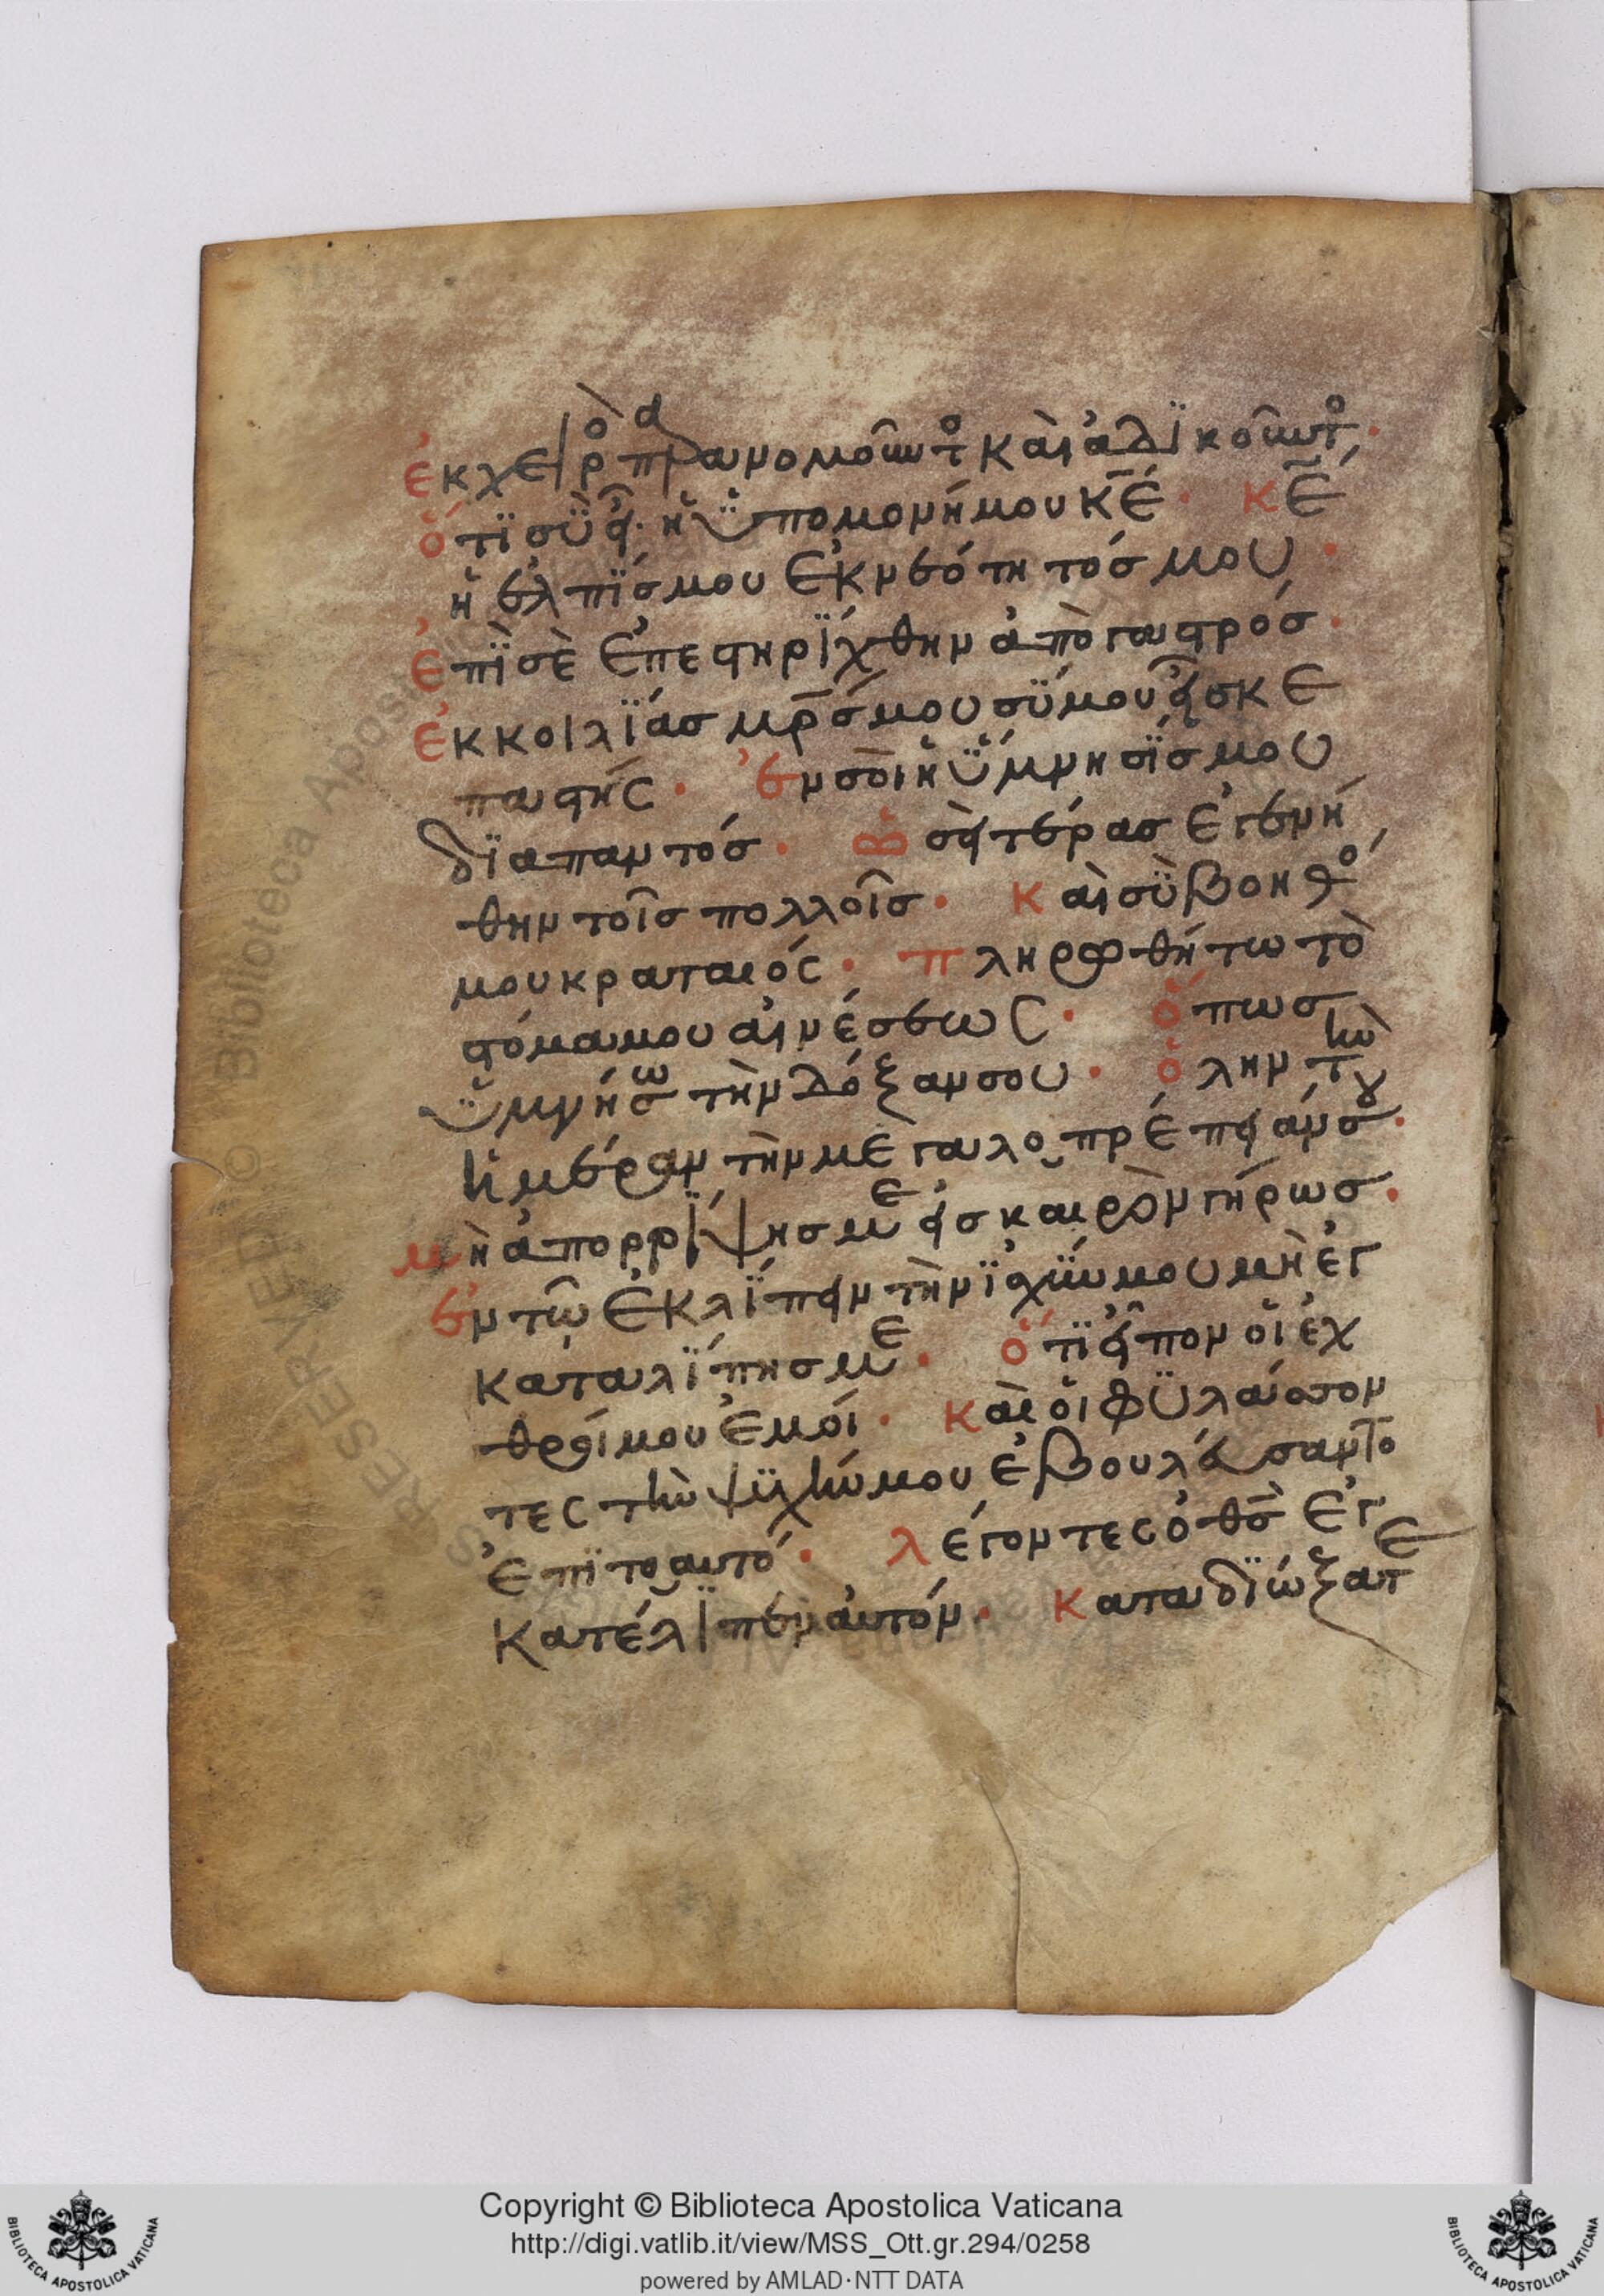 ἐκ χειρὸ παρανομοῦντο καὶ ἀδϊκοῦντο·
ὅτϊ σὺ εἶ ἡ ὑπομονή μου κε̄· κε̄
ἡ ἐλπΐσ μου ἐκ νεότητόσ μου·
ἐπῒ σὲ ἐπεστηρΐχθην ἀπὸ γαστρόσ·
ἐκ κοιλΐασ μρ̄σ μου σύ μου εἶ σκε
παστήσ· ἐν σοὶ ἡ ὕμνησΐσ μου
δϊαπαντόσ· ὡσεὶ τέρασ ἐγενή
θην τοῖσ πολλοῖσ· καὶ σὺ βοηθό
μου κραταιόσ· πληρωθήτω τὸ
στόμα μου αἰνέσεωσ· ὅπωσ
ὑμνήσω τὴν δόξαν σου· ὅλην τὴν
ἡμέραν τὴν μεγαλοπρέπειάν σου·
μὴ ἀπορρΐψησ με εἰσ καιρὸν γήρωσ·
ἐν τῷ ἐκλΐπειν τὴν ἰσχΰν μου μὴ ἐγ
καταλΐπησ με· ὅτϊ εἶπον οἱ ἐχ
θροί μου ἐμοί· καὶ οἱ φϋλάσσον
τεσ τὴν ψϋχήν μου ἐβουλεύσαντο
ἐπῒ το αυτό· λέγοντεσ ὁ θσ̄ ἐγ
κατέλιπεν αὐτόν· καταδϊώξατε
Copyright © Biblioteca Apostolica Vaticana
http://digi.vatlib.it/view/MSS_Ott.gr.294/0258
powered by AMLAD·NTT DATA
BIBLIOTECA APOSTOLICA VATICANA
BIBLIOTECA APOSTOLICA VATICANA